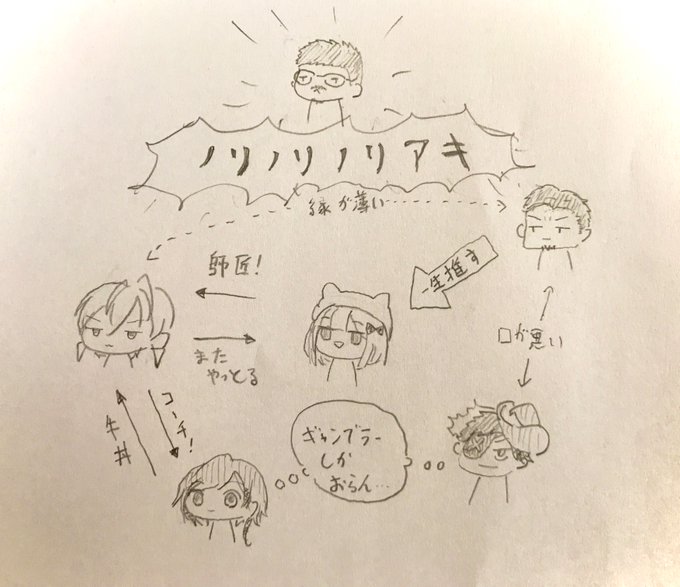 ノリノリノリアキ
縁が薄い
師匠!
一生推す
また
やっとる
口が悪い
コーチ!
牛丼
ギャンブラー
しか
おらん…